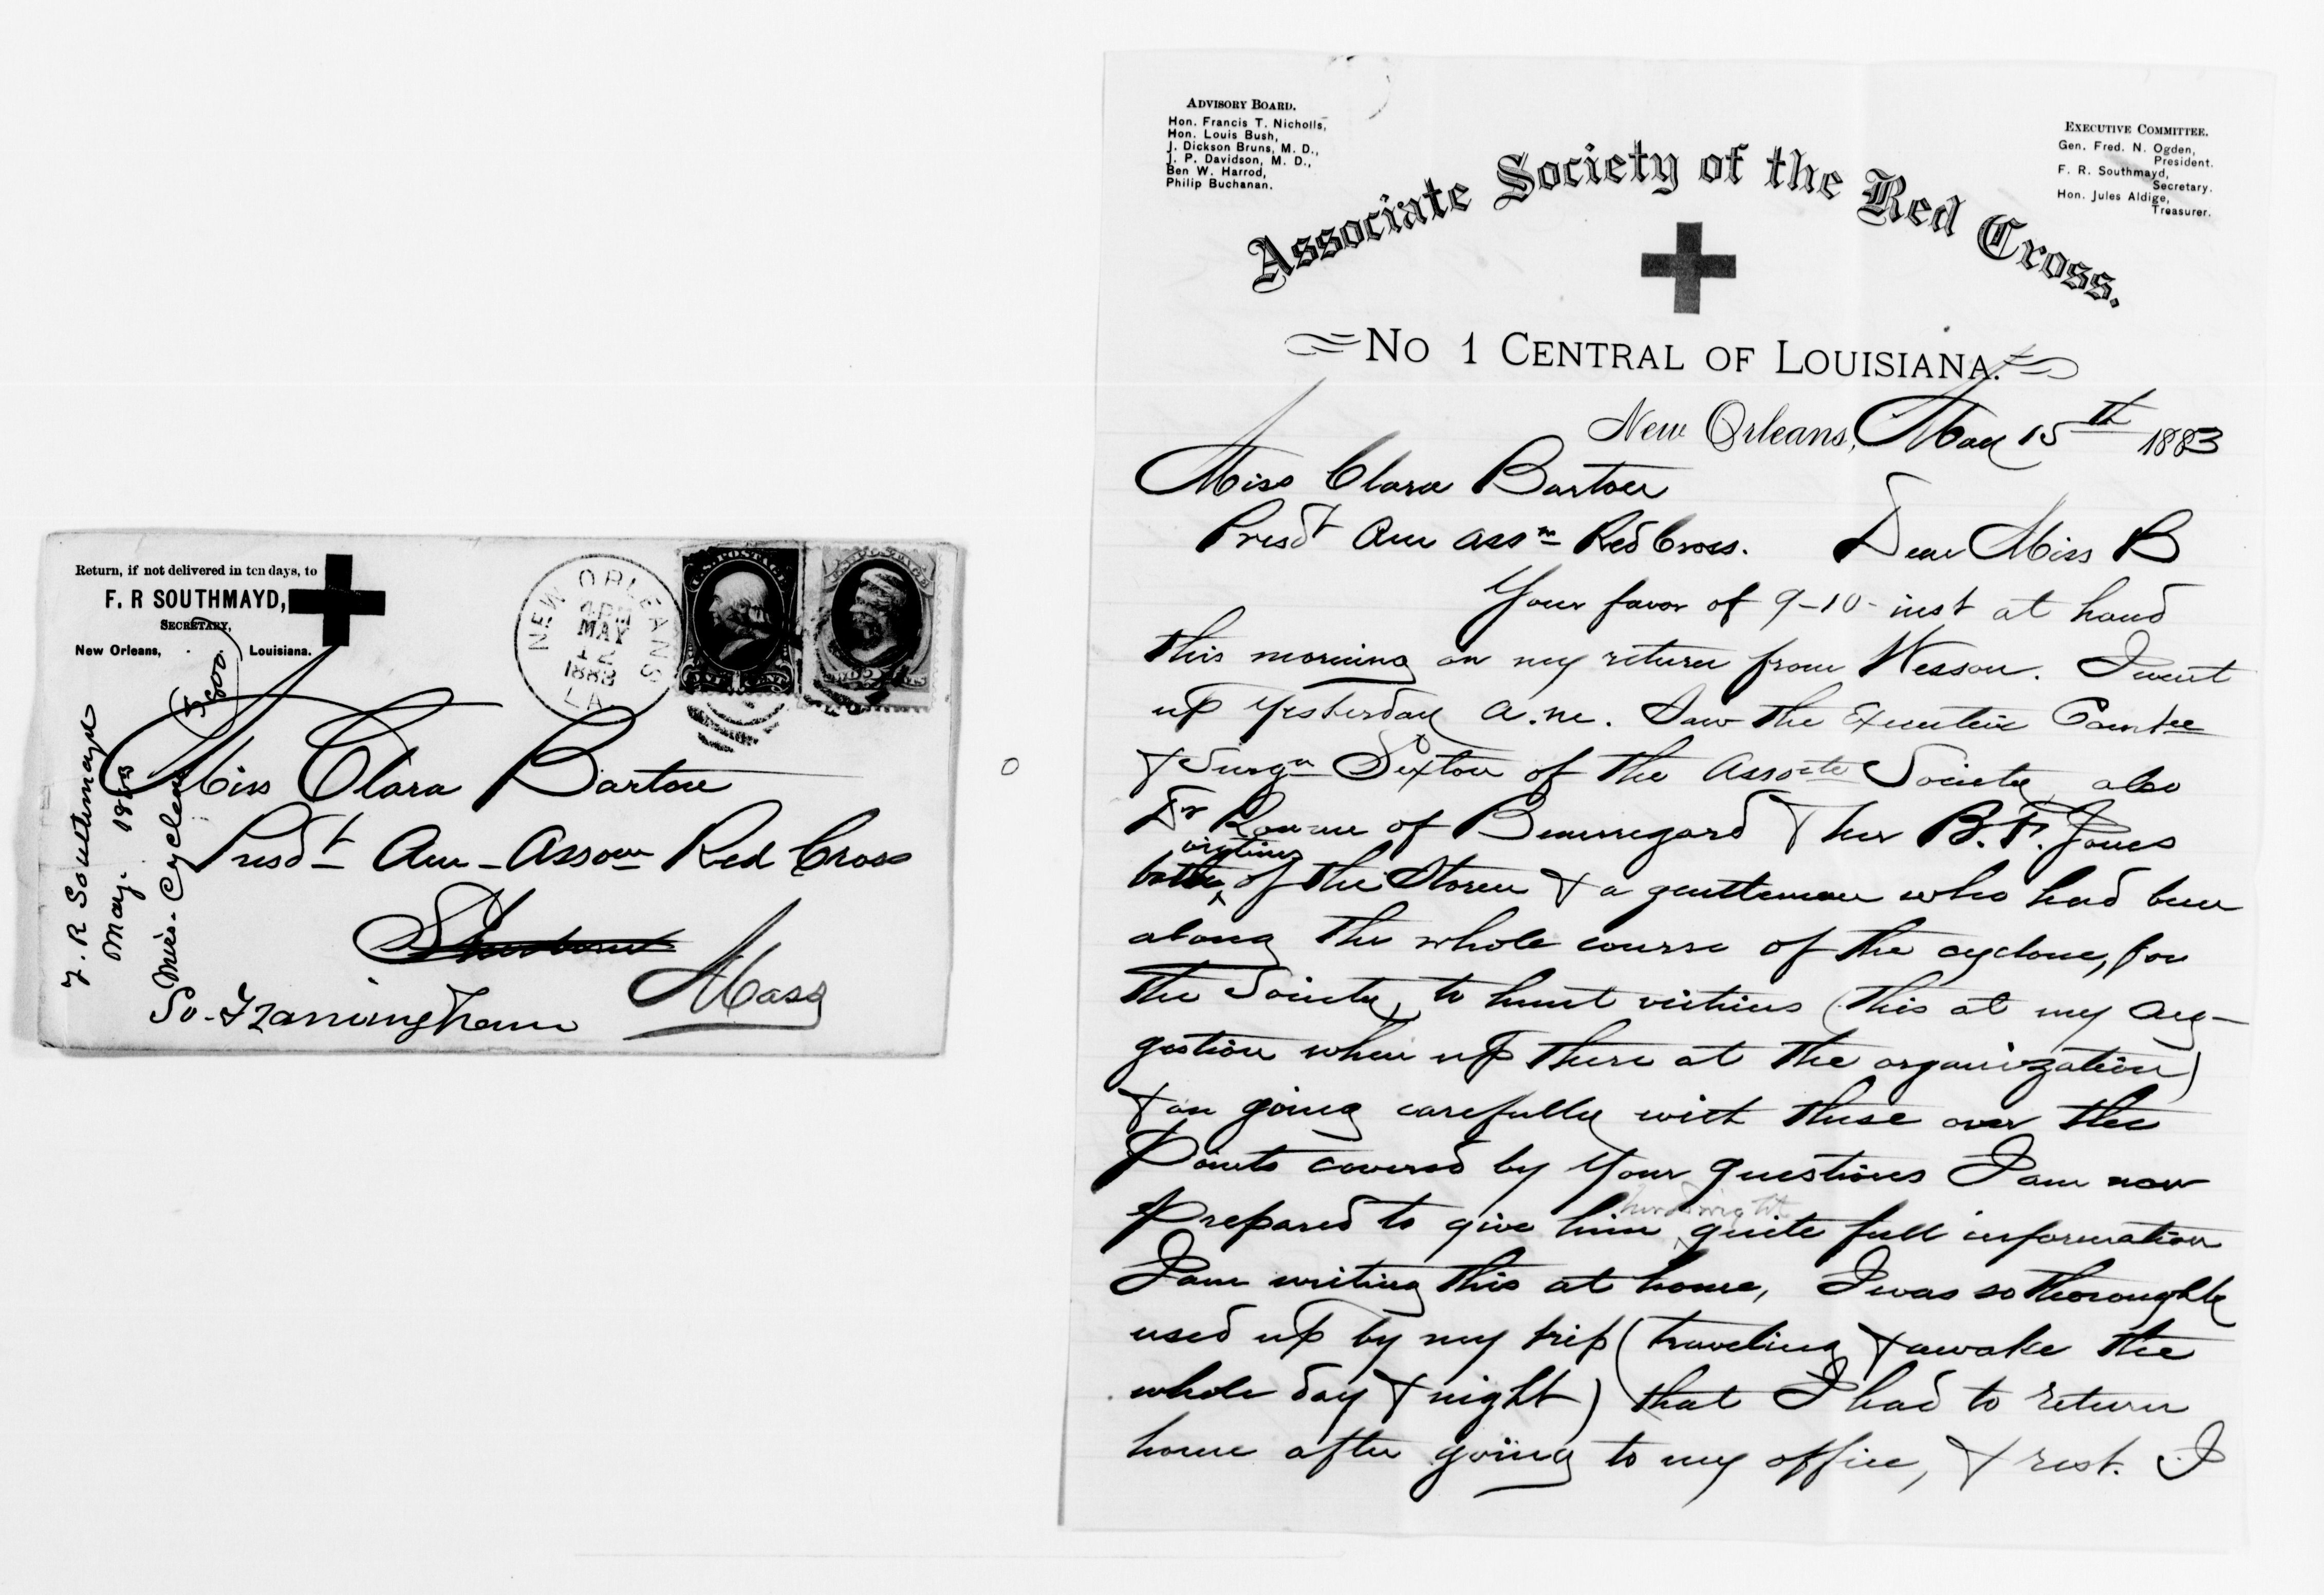 Return, if not delivered in ten days, to
F. R SOUTHMAYD,
SECRETARY,
New Orleans, Louisiana.
NEW ORLEANS
MAY
12
1883
LA
Miss Clara Barton
Presdt Am - Asson Red Cross
Mass
So - Framingham
F. R Southmayd
May. 1883
Miss. Cyclone
ADVISORY BOARD.
Hon. Francis T. Nicholls,
Hon. Louis Bush,
J. Dickson Bruns, M. D.,
J. P. Davidson, M. D.,
Ben W. Harrod,
Philip Buchanan.
EXECUTIVE COMMITTEE.
Gen. Fred. N. Ogden,
President.
F. R. Southmayd,
Secretary.
Hon. Jules Aldige,
Treasurer.
Associate Society of the Red Cross.
No 1 CENTRAL OF LOUISIANA.
New Orleans, May 15th 1883
Miss Clara Barton
Presdt Am Assn Red Cross. Dear Miss B
Your favor of 9-10- inst at hand
this morning on my return from Wesson. I went
up yesterday a.m. Saw the Executive Comtee
& Surgn Sexton of the Assocte Society, also
Dr of Beauregard & her B. F. Jones
both victims of the Storm & a gentleman who had been
along the whole course of the cyclone, for
the Society, to hunt victims (this at my sug-
gestion when up there at the organization)
& on going carefully with these over the
Points covered by your questions I am now
prepared to give him quite full information
I am writing this at home, I was so thoroughly
used up by my trip (traveling & awake the
whole day & night) that I had to return
home after going to my office, & rest. I